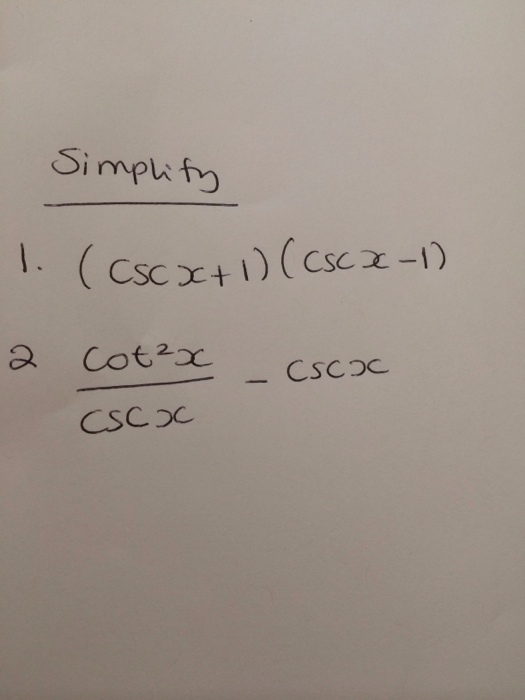 Simplify
1. (cscx+1)(cscx-1)
2 cot²x/cscx - cscx